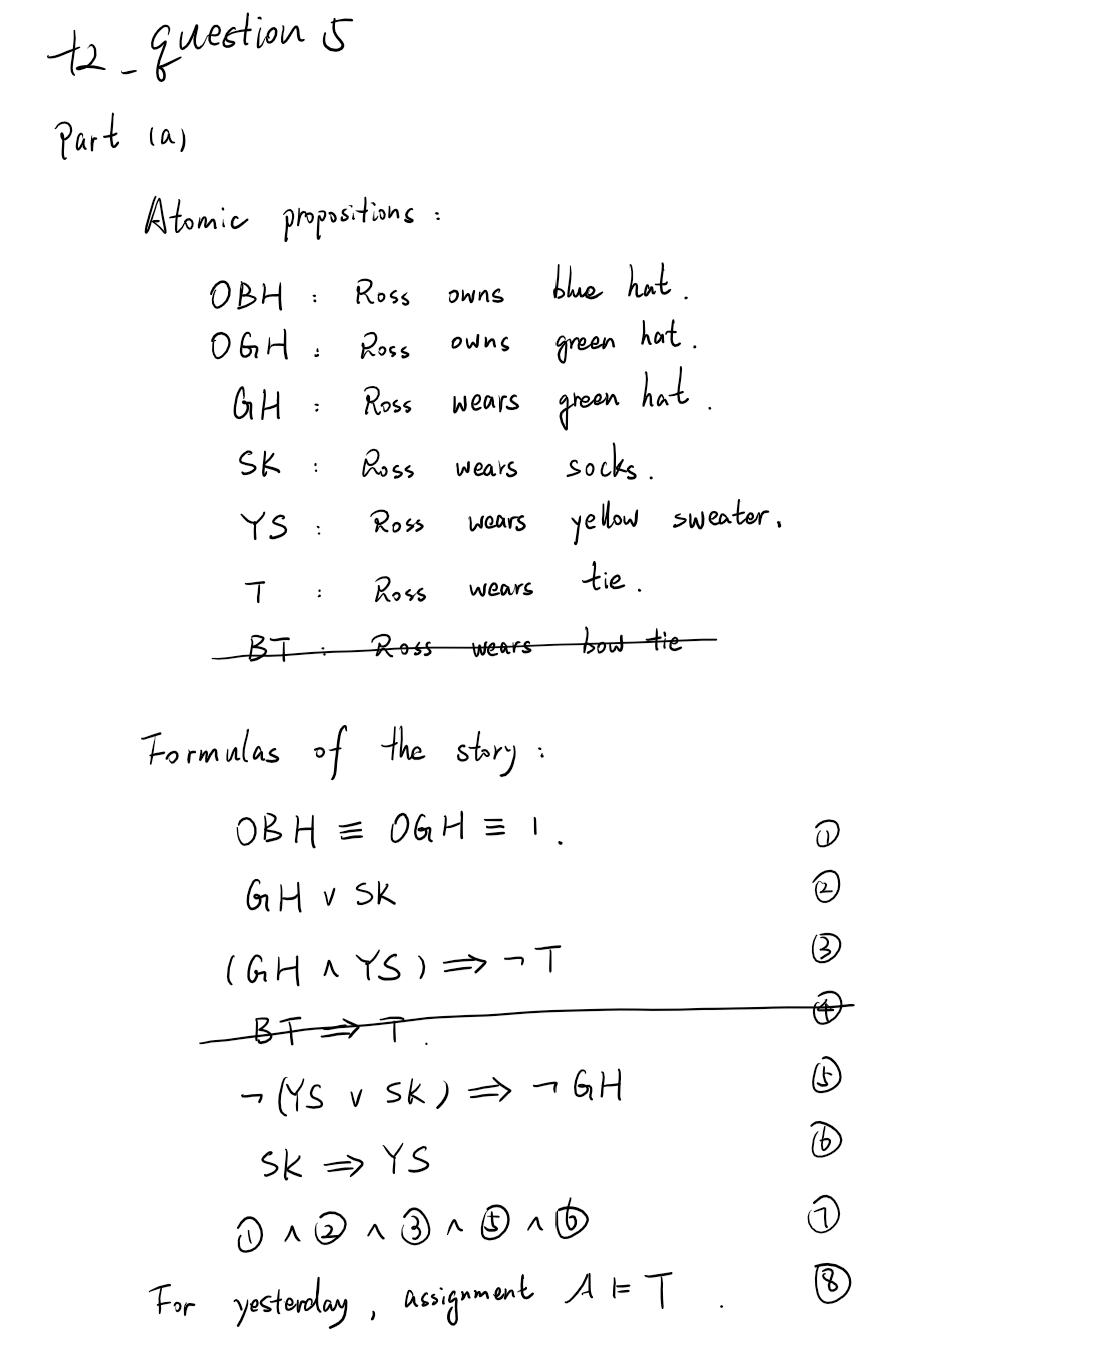 t2_question 5
Part (a)
Atomic propositions :
OBH : Ross owns blue hat.
OGH : Ross owns green hat.
GH : Ross wears green hat.
SK : Ross wears socks.
YS : Ross wears yellow sweater.
T : Ross wears tie.
BT : Ross wears bow tie
Formulas of the story :
OBH ≡ OGH ≡ 1. ①
GH ∨ SK ②
(GH ∧ YS) ⟹ ¬T ③
BT ⟹ T. ④
¬(YS ∨ SK) ⟹ ¬GH ⑤
SK ⟹ YS ⑥
① ∧ ② ∧ ③ ∧ ⑤ ∧ ⑥ ⑦
For yesterday, assignment A ⊨ T. ⑧